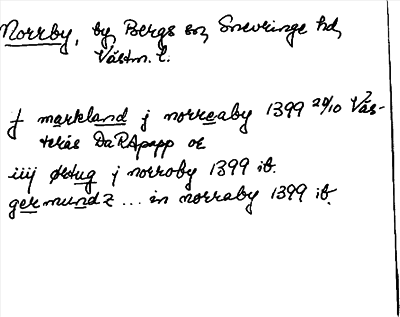 Norrby, by Bergs sn, Snevringe hd,
Västm. l.
j markland j norreaby 1399 29/10 Väs-
terås DaRApapp or
iiij ørtug j norroby 1399 ib.
germundz ... in norraby 1399 ib.